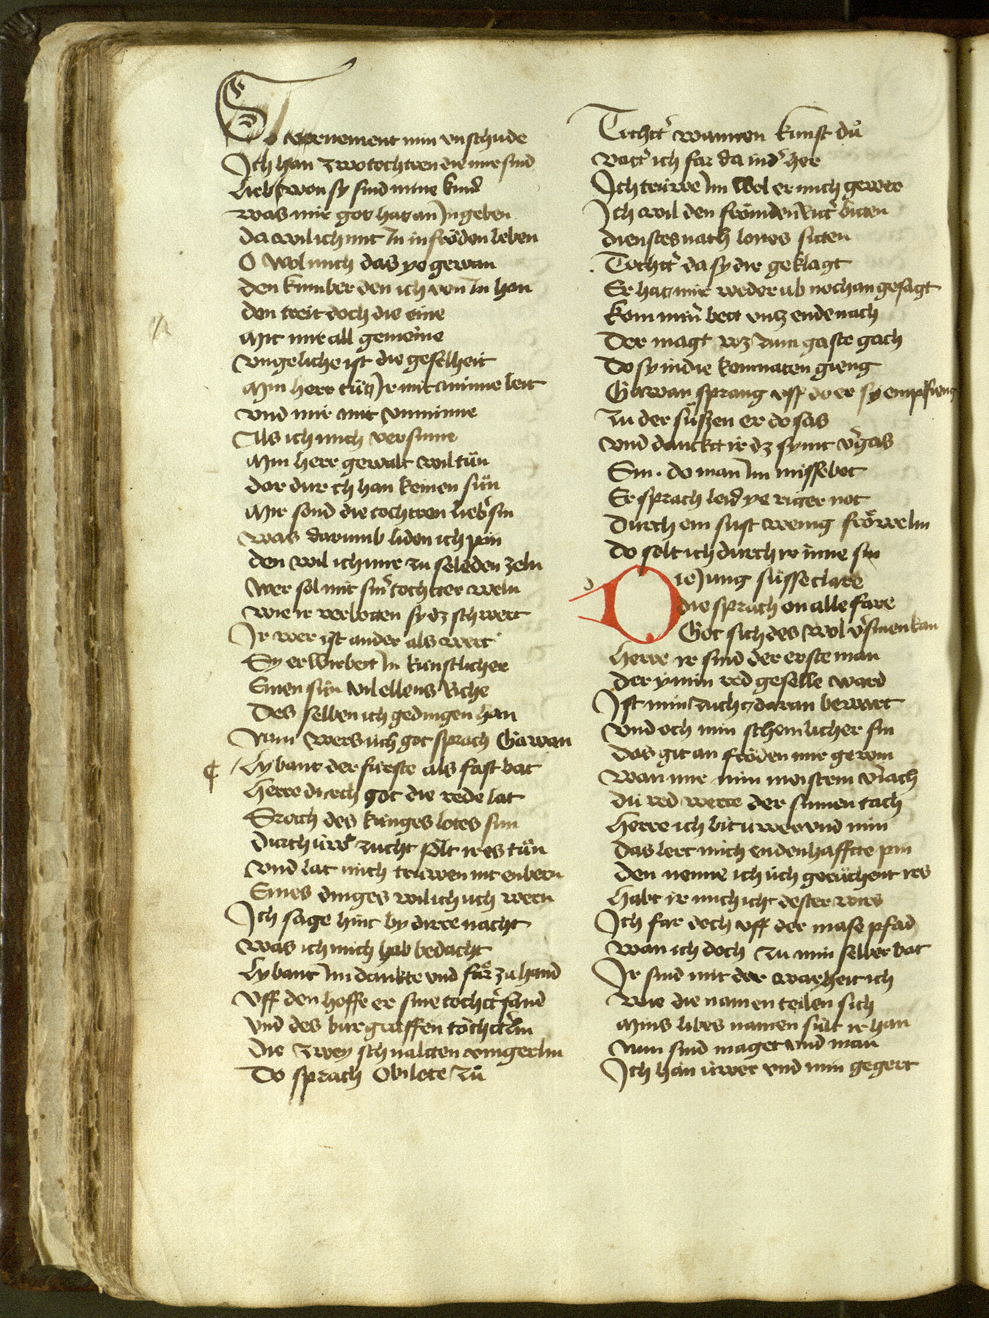 So vernement min vnschude
Ich han zwo tochtren die mir sind
Lieb won sy sind mine kind
Was mir got hat an In geben
Da wil ich mit In in fröden leben
O wol mich das ye gewan
Den kumber den ich von In han
Den treit doch die eine
Mit mir all gemeine
Vngeliche ist die geselheit
Min herr tůt Ir mit minne leit
Vnd mir mit vnminne
Als ich mich versinne
Min herr gewalt wil tůn
Dar durch han keinen sůn
Mir sond die tochtren lieb sin
Was darumb liden ich pin
Den wil ich mir zu selden zeln
Wer sol mit sinr tochter weln
Wie ir verbotten sy dz schwert
Ir wer ist ander als wert
Sy erwirbet In kunstlicher
Einen sůn vil ellens riche
Des selben ich gedingen han
Nun wers üch got sprach Gawan
Lybaut der fürste als fast bat
Herre durch got die rede lat
Sprach des kunges lotes sun
Durch üwer zucht sölt ir es tůn
Vnd lat mich trüwen nit enbern
Eines dinges wil ich üch wern
Ich sage hint by dirre nacht
Was ich mich hab bedacht
Lybaut Im dankte vnd fůr zu hand
Vff den hoffe er sine tochter fand
Vnd des burgraffen töchterlin
Die zwey schnalten vingerlin
Do sprach Obilote zů
Tochter wannen kunst du
Vatter ich far da nider her
Ich trüwe Im wol er mich gewer
Ich wil den frömden Ritter bitten
Dienstes nach lones sitten
Tochter da sy dir geklagt
Er hat mir weder ab noch an gesagt
Kom miner bett vntz ende nach
Der magt wz zum gaste gach
Do sy in die komnaten gieng
Gawan sprang vff do er sy empfieng
Zu der süszen er do sas
Vnd danckt ir dz sy nit vergas
Sin do man Im missebot
Er sprach leid ye ritter not
Durch ein sust wenig fröwelin
Do solt ich durch ir inne sin
Die Jung süsse clare
Die sprach on alle fare
Got sich des wol versinnen kan
Herre ir sind der erste man
Der ye min red geselle ward
Ist min zucht daran bewart
Vnd och min schemlicher sin
Das git an fröden mir gewin
Wan mir min meistern veriach
Du red werre der sinnen tach
Herre ich bit üwer vnd min
Das lert mich endenhaffte pin
Den nenne ich üch geruchent irs
Habt ir mich icht dester wirs
Ich far doch vff der mase pfad
Wan ich doch zu min selber bat
Ir sind mit der warheit ich
Wie die namen teilen sich
Mins libes namen sült ir han
Nun sind maget vnd man
Ich han üwer vnd min gegert